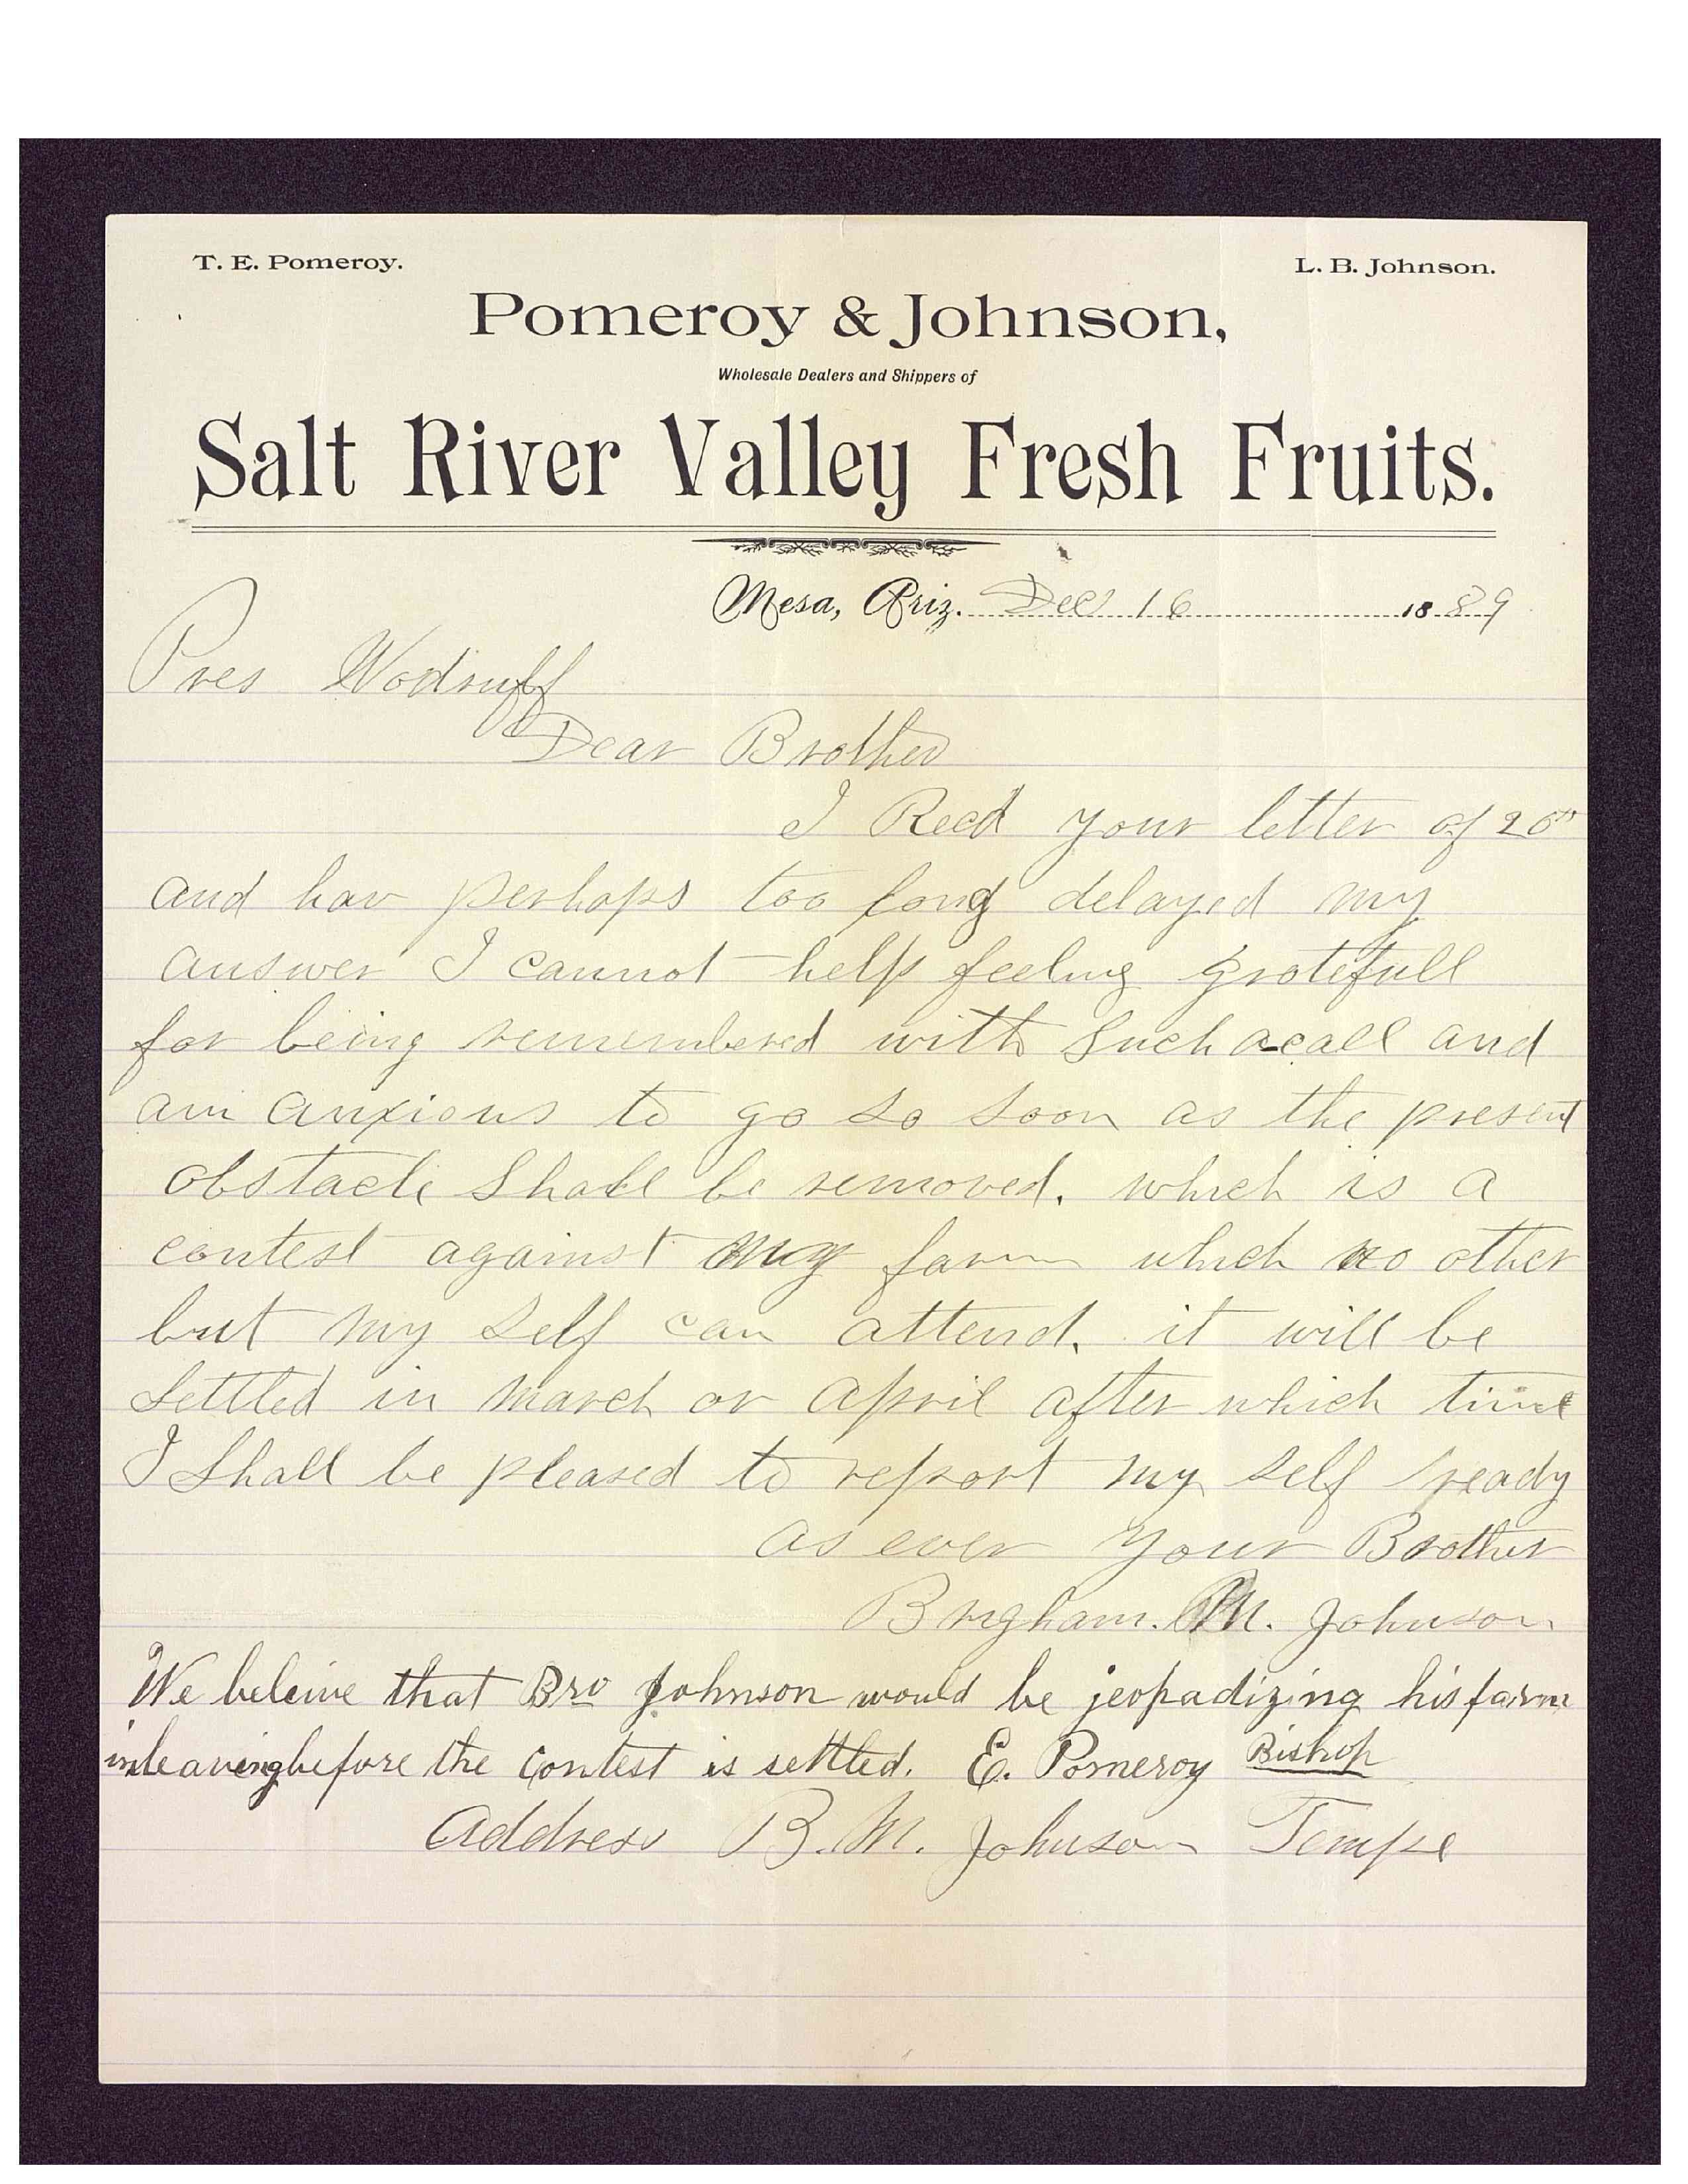 T. E. Pomeroy. L. B. Johnson.
Pomeroy & Johnson,
Wholesale Dealers and Shippers of
Salt River Valley Fresh Fruits.
Mesa, Ariz. Dec 16 1889
Pres Wodruff
Dear Brother
I Recd your letter of 20th
and hav perhaps too long delayed my
answer I cannot help feeling gratefull
for being remembered with such a call and
am anxious to go so soon as the present
obstacle shall be removed, which is a
contest against my farm which no other
but my self can attend, it will be
settled in march or april after which time
I shall be pleased to report my self ready
as ever your Brother
Brigham. M. Johnson
We beleive that Bro Johnson would be jeopadizing his farm
in leaving before the contest is settled. E. Pomeroy Bishop
address B. M. Johnson Tempe